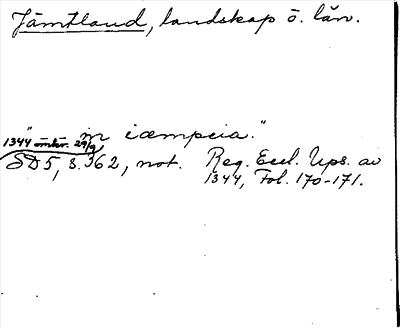 Jämtland, landskap o. län.
"in iæmpcia."
1344 omkr. 29/9,
SD 5, s. 362, not. Reg. Eccl. Ups. av
1344, Fol. 170-171.